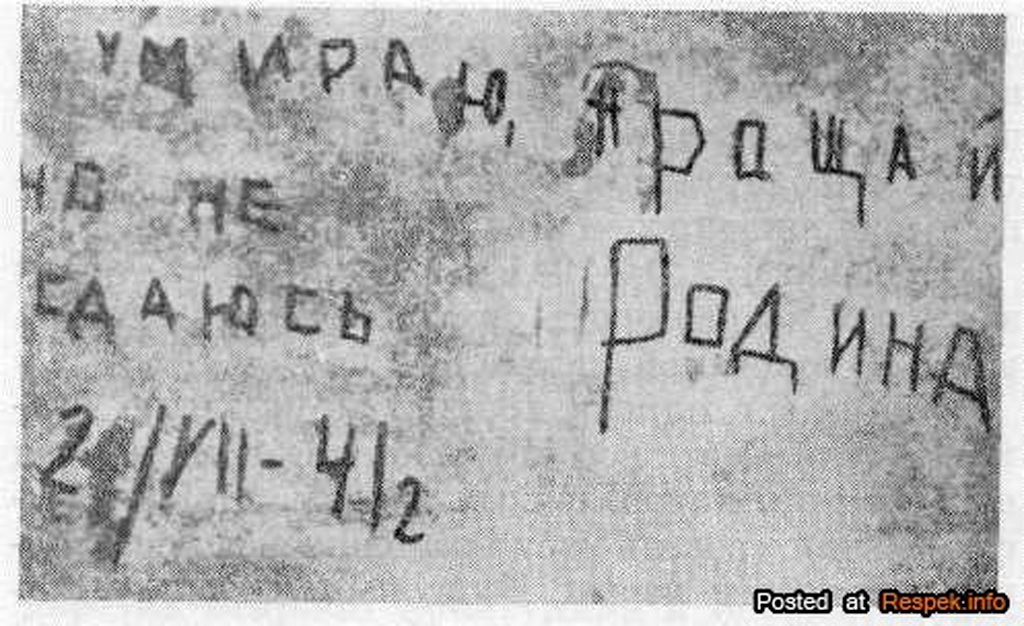 УМИРАЮ,
НО НЕ
СДАЮСЬ
ПРОЩАЙ
РОДИНА
20/VII-41г
Posted at Respek.info